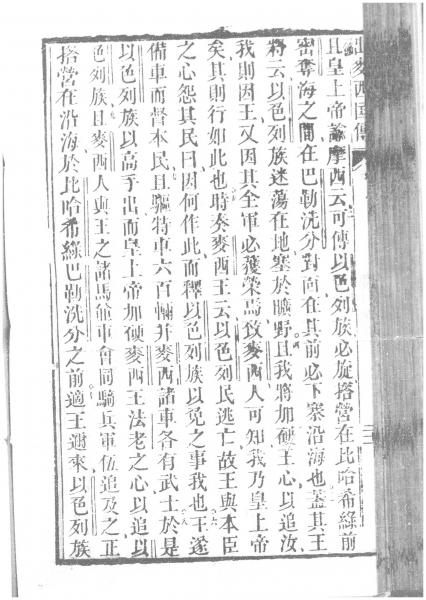 出麥西国傳
且皇上帝諭摩西云可傳以色列族必旋塔營在比哈希綠前
密奪海之間在巴勒洗分對向在其前必下寨沿海也蓋其王
將云以色列族迷蕩在地塞於曠野且我將加硬王心以追汝
我則因王又因其全軍必獲榮焉致麥西人可知我乃皇上帝
矣其則行如此也時奏麥西王云以色列民逃亡故王與本臣
之心怨其民曰因何作此而釋以色列族以免之事我也王遂
備車而督本民且驅特車六百輛并麥西諸車各有武士於是
以色列族以高手出而皇上帝加硬麥西王法老之心以追以
色列族且麥西人與王之諸馬並車會同騎兵軍伍追及之正
塔營在沿海於比哈希綠巴勒洗分之前適王邇來以色列族